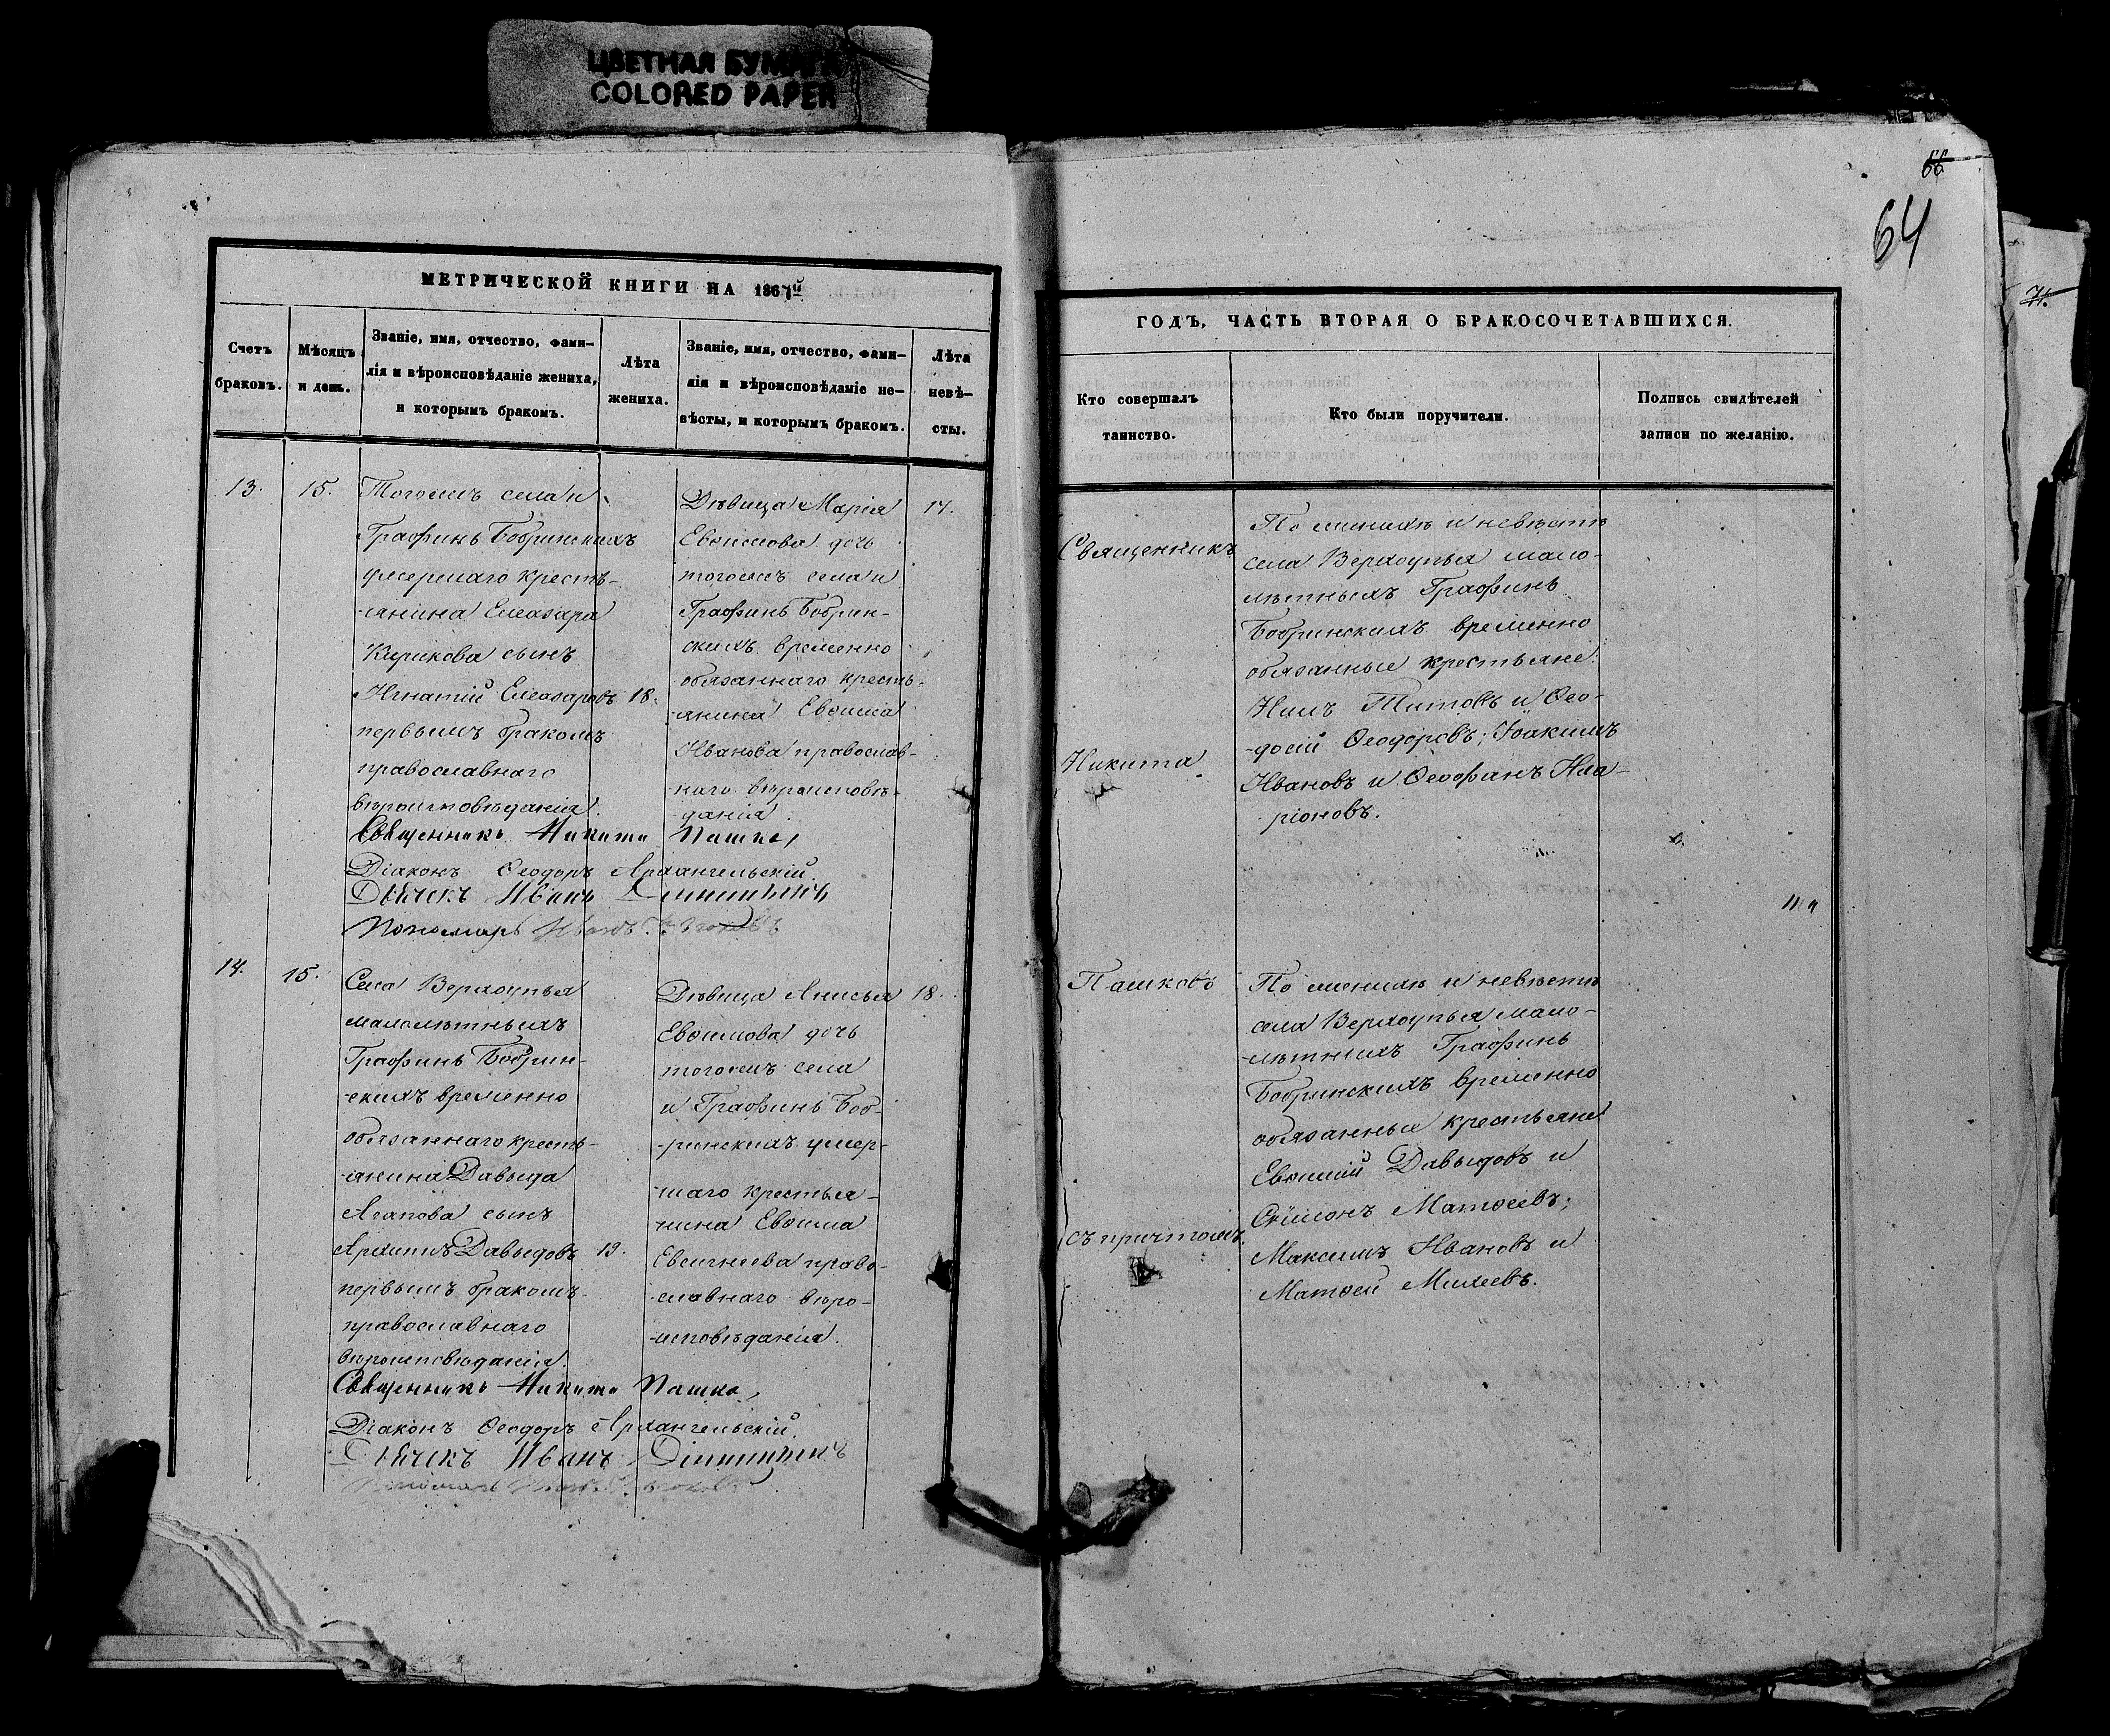 ЦВЕТНАЯ БУМАГА
COLORED PAPER
66
64
71.
МЕТРИЧЕСКОЙ КНИГИ НА 1867й
Счетъ браковъ.
Мѣсяцъ и день.
Званіе, имя, отчество, фами-
лія и вѣроисповѣданіе жениха,
и которымъ бракомъ.
Лѣта
жениха.
Званіе, имя, отчество, фами-
лія и вѣроисповѣданіе не-
вѣсты, и которымъ бракомъ.
Лѣта
невѣ-
сты.
13.
15.
Тогожъ села и
Графинь Бобринскихъ
умершаго кресть-
-янина Елеазара
Кирикова сынъ
Игнатій Елеазаровъ
первымъ бракомъ
православнаго
вѣроисповѣданія.
18.
Дѣвица Марія
Евѳимова дочь
тогожъ села и
Графинь Бобрин-
скихъ временно
обязаннаго кресть-
-янина Евѳима
Иванова православ-
наго вѣроисповѣ-
-данія.
17.
Священникъ Никита Пашко
Діаконъ Ѳеодоръ Архангельскій.
Дьячекъ Иванъ
Пономарь Иванъ
14.
15.
Села Верхоупья
малолѣтныхъ
Графинь Бобрин-
-скихъ временно
обязаннаго кресть-
-янина Давыда
Агапова сынъ
Архипъ Давыдовъ
первымъ бракомъ
православнаго
вѣроисповѣданія.
19.
Дѣвица Анисья
Евѳимова дочь
тогожъ села
и Графинь Боб-
-ринскихъ умер-
-шаго крестья-
-нина Евѳима
Евсигнеева право-
-славнаго вѣро-
-исповѣданія.
18.
Священникъ Никита Пашко
Діаконъ Ѳеодоръ Архангельскій.
Дьячекъ Иванъ
Пономарь
ГОДЪ, ЧАСТЬ ВТОРАЯ О БРАКОСОЧЕТАВШИХСЯ.
Кто совершалъ
таинство.
Кто были поручители.
Подпись свидѣтелей
записи по желанію.
Священникъ
Никита
Пашковъ
съ причтомъ.
По женихѣ и невѣстѣ
села Верхоупья мало-
лѣтныхъ Графинь
Бобринскихъ временно
обязанные крестьяне:
Титовъ и Ѳео-
-досій Ѳеодоровъ; Іоакимъ
Ивановъ и Ѳеофанъ Ила-
-ріоновъ.
По женихѣ и невѣстѣ
села Верхоупья мало-
-лѣтнихъ Графинь
Бобринскихъ временно
обязанные крестьяне
Евѳимій Давыдовъ и
Сѵмеонъ Матѳеевъ;
Максимъ Ивановъ и
Матѳей Михеевъ.